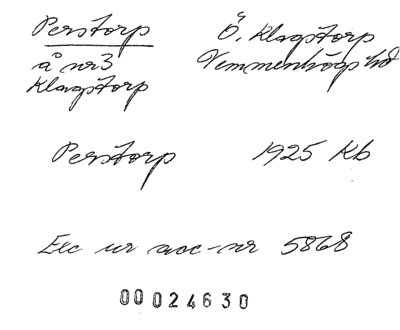 Perstorp
å nr 3
Klagstorp
Ö. Klagstorp
Vemmenhögs hd
Perstorp 1925 Kb
Exc ur acc-nr 5868
00 024630